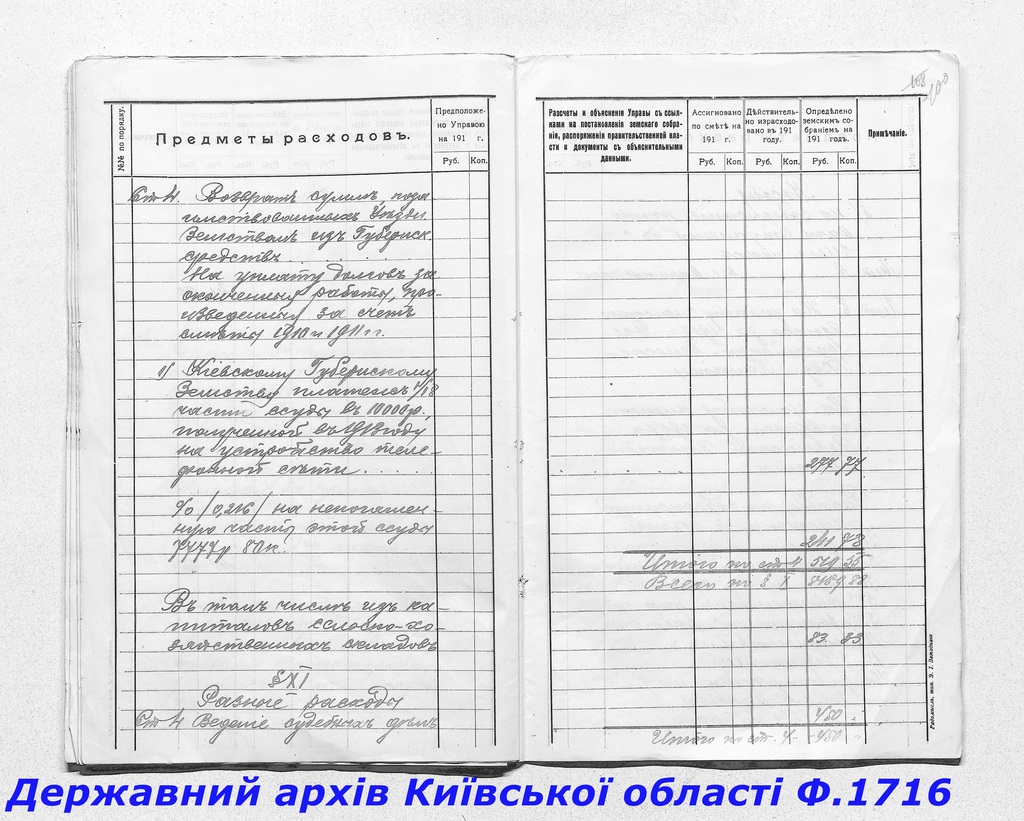 168
100
№№ по порядку.
Предметы расходовъ.
Предположе-
но Управою
на 191 г.
Руб. Коп.
Ст 4. Возвратъ суммъ, поза-
имствованныхъ Уездн.
Земствомъ изъ Губернск.
средствъ . . . . .
На уплату долговъ за
оконченныя работы, про-
изведенныя за счетъ
сметы 1910 и 1911 г.г.
1/ Кіевскому Губернскому
Земству платежъ 1/18
части ссуды въ 10000 р.,
полученной въ 1913 году
на устройство теле-
фонной сети . . . .
% /0,246/ на непогашен-
ную часть этой ссуды
7777 р 80 к.
Въ томъ числе изъ ка-
питаловъ сельско-хо-
зяйственныхъ складовъ
§ XI
Разные расходы
Ст 4 Веденіе судебныхъ делъ
Разсчеты и объясненія Управы съ ссыл-
ками на постановленія земскаго собра-
нія, распоряженія правительственной вла-
сти и документы съ объяснительными
данными.
Ассигновано
по сметѣ на
191 г.
Руб. Коп.
Дѣйствитель-
но израсходо-
вано въ 191
году.
Руб. Коп.
Опредѣлено
земскимъ со-
браніемъ на
191 годъ.
Руб. Коп.
Примѣчаніе.
277 77
241 78
Итого по ст 4 519 55
Всего по § X 8189 88
83. 83
450 .
Итого по ст. 4 - 450 .
Державний архів Київської області Ф.1716